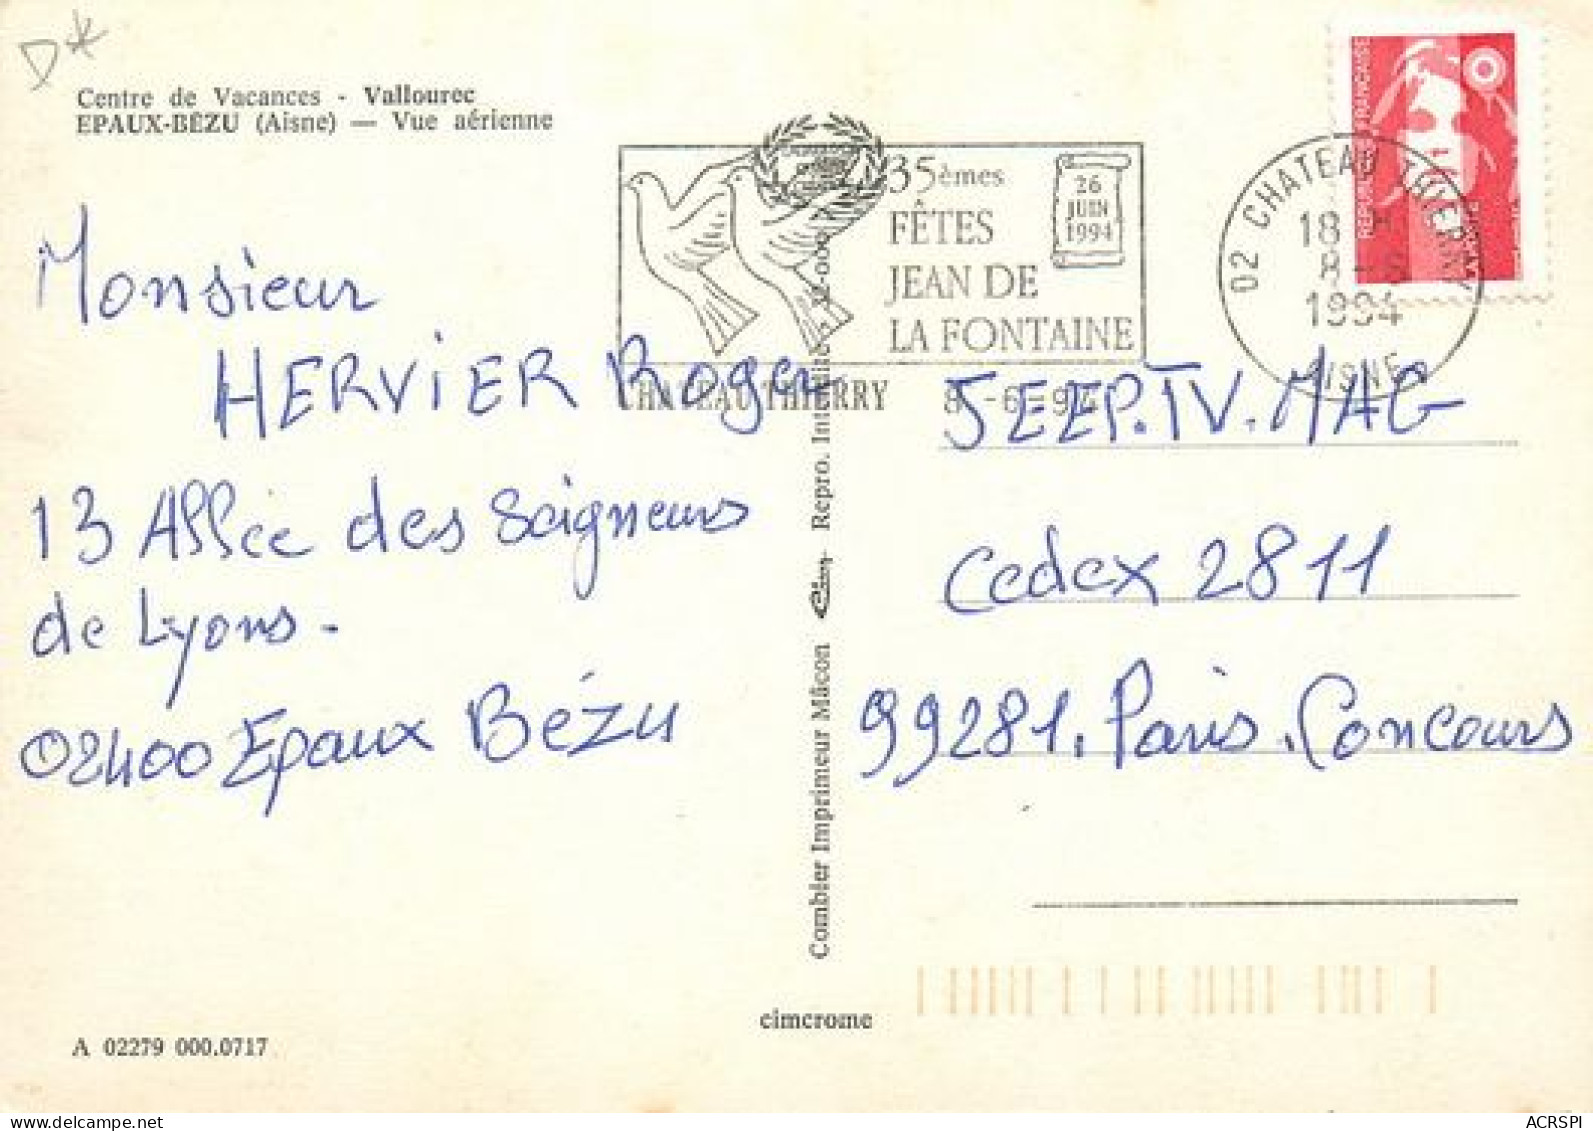 D*
Centre de Vacances - Vallourec
EPAUX-BÉZU (Aisne) — Vue aérienne
35èmes
FÊTES
JEAN DE
LA FONTAINE
26
JUIN
1994
CHATEAU THIERRY 8-6-94
02 CHATEAU THIERRY
18 H
8-6
1994
AISNE
REPUBLIQUE FRANÇAISE
Monsieur
HERVIER Roger
13 Allée des Seigneurs
de Lyons.
02400 Epaux Bézu
Combier Imprimeur Mâcon
Repro. Interdite
SEEP.TV.MAG
Cedex 2811
99281. Paris. Concours
cimcrome
A 02279 000.0717
ACRSPI